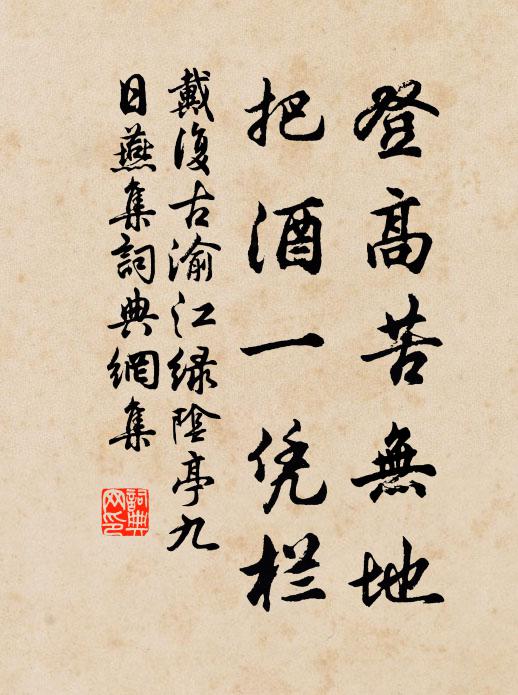 登高苦無地
把酒一凭栏
戴復古渝江緑陰亭九
日燕集詞典網集
詞典
网印